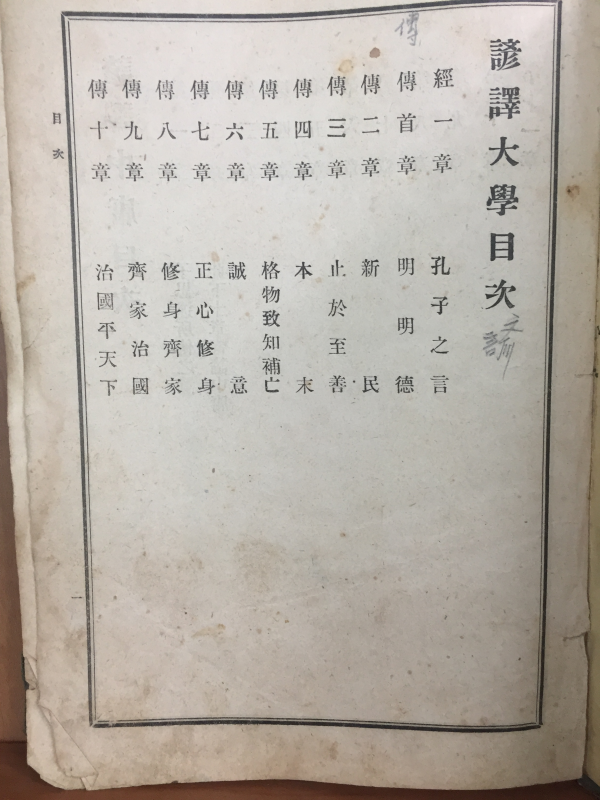 諺譯大學目次
經一章 孔子之言
傳首章 明明德
傳二章 新民
傳三章 止於至善
傳四章 本末
傳五章 格物致知補亡
傳六章 誠意
傳七章 正心修身
傳八章 修身齊家
傳九章 齊家治國
傳十章 治國平天下
目次
一
傳